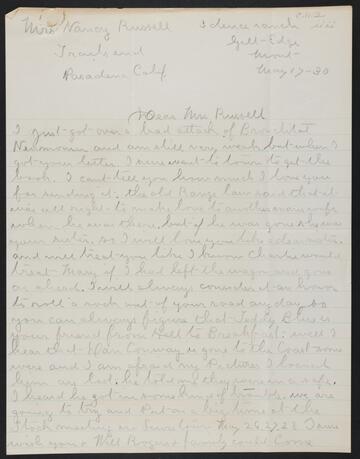 Mrs Nancy Russell
Trails end
Pasadena Calif
ranch
Gilt-Edge
Mont-
May 17-30
Dear Mrs Russell
I just got over a bad attack of
and am still very weak but when I
got your letter I sure went to town to get the
book. I cant tell you how much I love you
for sending it. the old Range law said that it
was all right to make love to another mans wife
when he was there, but if he was gone she was
your sister. so I will love you like a sister
and will treat you like I know Charlie would
treat Mary if I had left the wagon and gone
on ahead. I will always consider it an honor
to roll a rock out of your road any day so
you can always figure that Teddy Blue is
your friend from Hell to Breakfast. well I
hear that Dan Conway is gone to the Coast some
were and I am afraid my Pictures I loaned
him are lost. he told me they were in a safe.
I heard he got in some kind of trouble. we are
going to try and Put on a big time at the
Stock meeting at May 26, 27, 28. I sure
wish you & Will Rogers & family could Come